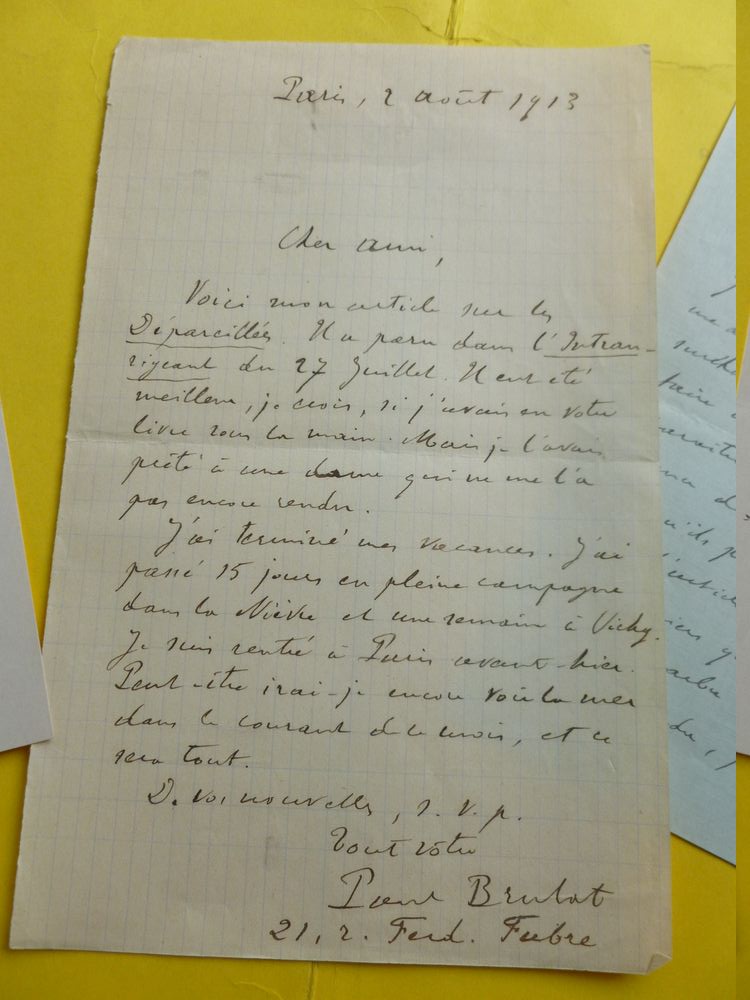 Paris, 2 août 1913
Cher ami,
Voici mon article sur les
Déparcillés. Il a paru dans l'Intran-
sigeant du 27 Juillet. Il eut été
meilleur, je crois, si j'avais eu votre
livre sous la main. Mais je l'avais
prêté à une dame qui ne me l'a
pas encore rendu.
J'ai terminé mes vacances. J'ai
passé 15 jours en pleine campagne
dans la Nièvre et une semaine à Vichy.
Je suis rentré à Paris avant-hier.
Peut-être irai-je encore voir la mer
dans le courant de ce mois, et ce
sera tout.
De vos nouvelles, s.v.p.
Tout votre
Paul Brulat
21, r. Ferd. Fabre
une
faire